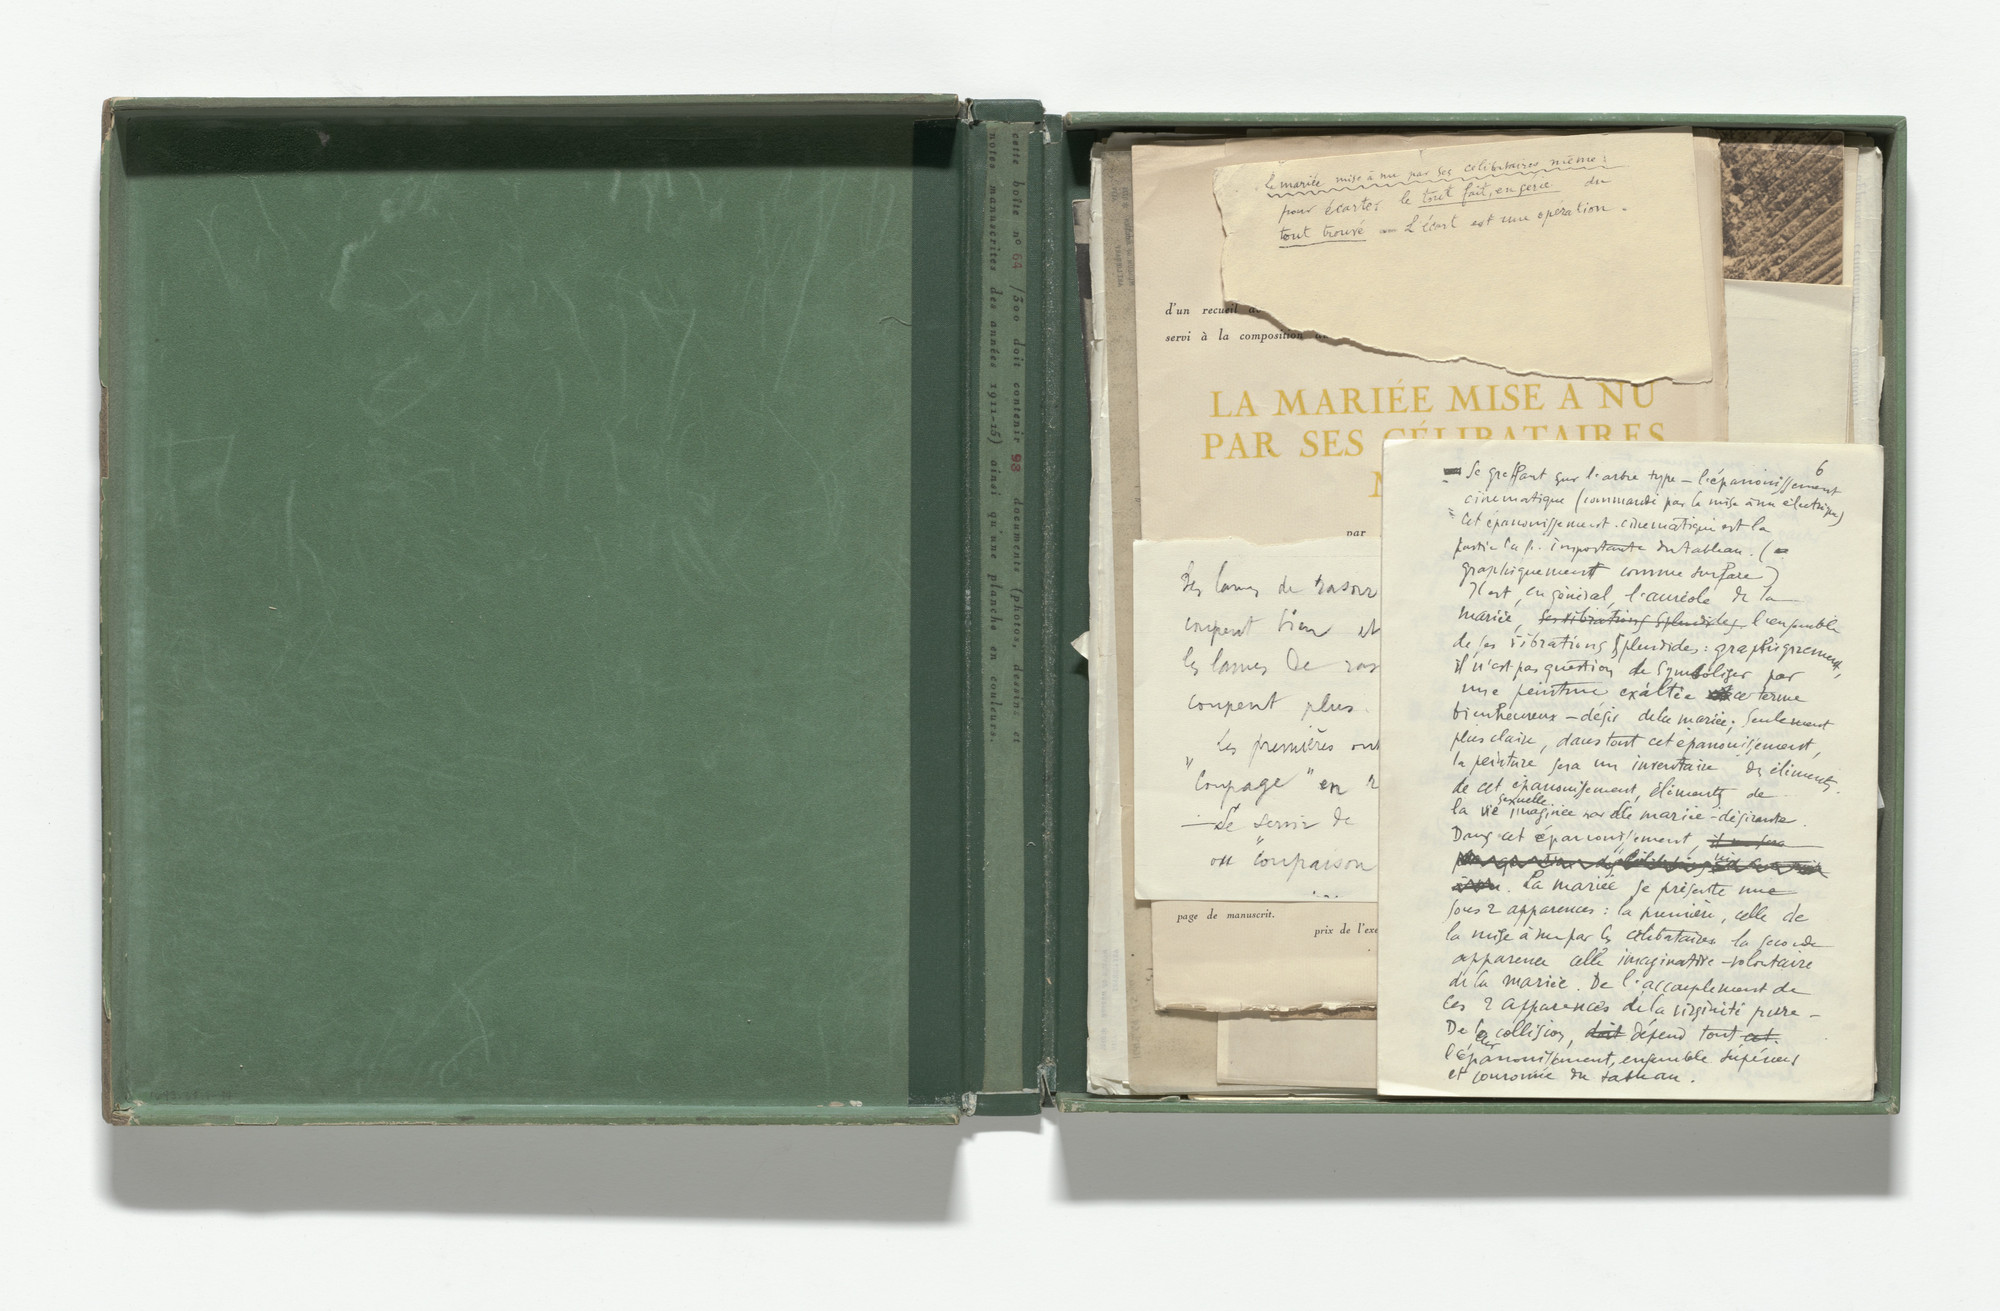 cette boîte nº 64 /300 doit contenir 93 documents (photos, dessins et
notes manuscrites des années 1911-15) ainsi qu'une planche en couleurs.
la mariée mise à nu par ses célibataires même :
pour écarter le tout fait, en série du
tout trouvé — L'écart est une opération.
d'un recueil
servi à la composition
LA MARIÉE MISE A NU
PAR SES CÉLIBATAIRES
par
Des lames de rasoir
coupent bien et
des lames de
coupent plus.
Les premières ont
"coupage" en
— Se servir de
ou "coupaison
page de manuscrit.
prix de l'exe
6
Se greffant sur l'arbre type — l'épanouissement
cinématique (commandé par la mise à nu électrique)
Cet épanouissement cinématique est la
partie la p. importante du tableau. (
graphiquement comme surface)
Il est, en général, l'auréole de la
mariée, ses vibrations splendides l'ensemble
de ses vibrations splendides : graphiquement,
il n'est pas question de symboliser par
une peinture exaltée ce terme
bienheureux – désir de la mariée; seulement
plus claire, dans tout cet épanouissement,
la peinture sera un inventaire des éléments
de cet épanouissement, éléments de
la vie sexuelle imaginée par elle mariée-désirante.
Dans cet épanouissement,
La mariée se présente nue
sous 2 apparences : la première, celle de
la mise à nu par les célibataires la seconde
apparence celle imaginative-volontaire
de la mariée. De l'accouplement de
ces 2 apparences de la virginité pure —
De la collision, doit dépend tout cet
l'épanouissement, ensemble supérieur
et couronne du tableau.